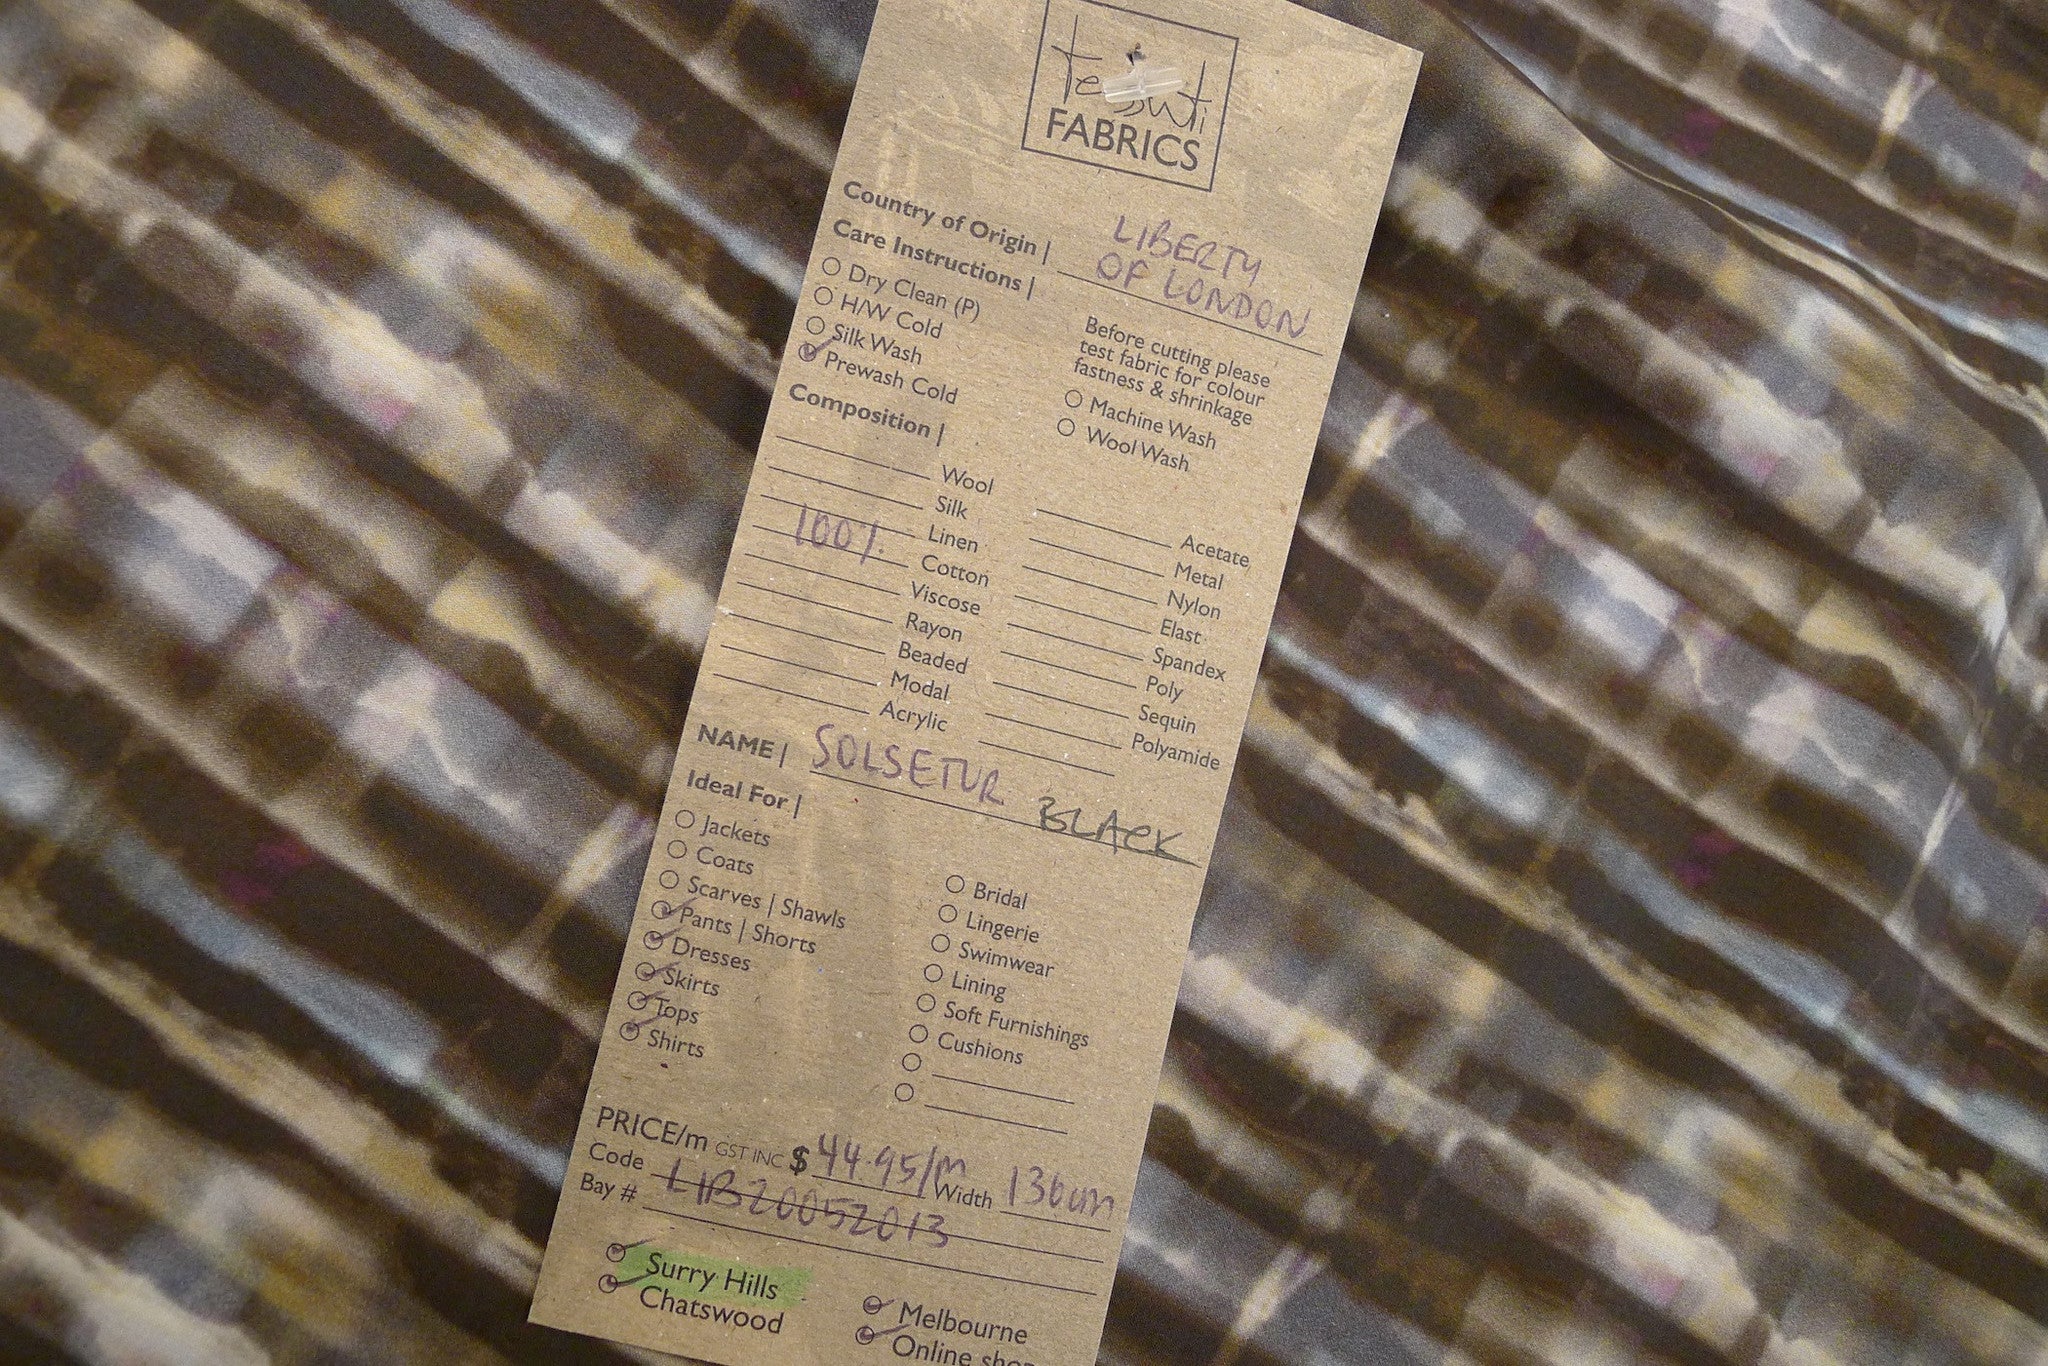 tessuti
FABRICS
Country of Origin | LIBERTY
OF LONDON
Care Instructions |
Dry Clean (P)
H/W Cold
Silk Wash
Prewash Cold
Before cutting please
test fabric for colour
fastness & shrinkage
Machine Wash
Wool Wash
Composition |
Wool
Silk
Linen
100% Cotton
Viscose
Rayon
Beaded
Modal
Acrylic
Acetate
Metal
Nylon
Elast
Spandex
Poly
Sequin
Polyamide
NAME | SOLSETUR BLACK
Ideal For |
Jackets
Coats
Scarves | Shawls
Pants | Shorts
Dresses
Skirts
Tops
Shirts
Bridal
Lingerie
Swimwear
Lining
Soft Furnishings
Cushions
PRICE/m GST INC $44.95/m Width 136cm
Code LIB20052013
Bay #
Surry Hills
Chatswood
Melbourne
Online shop